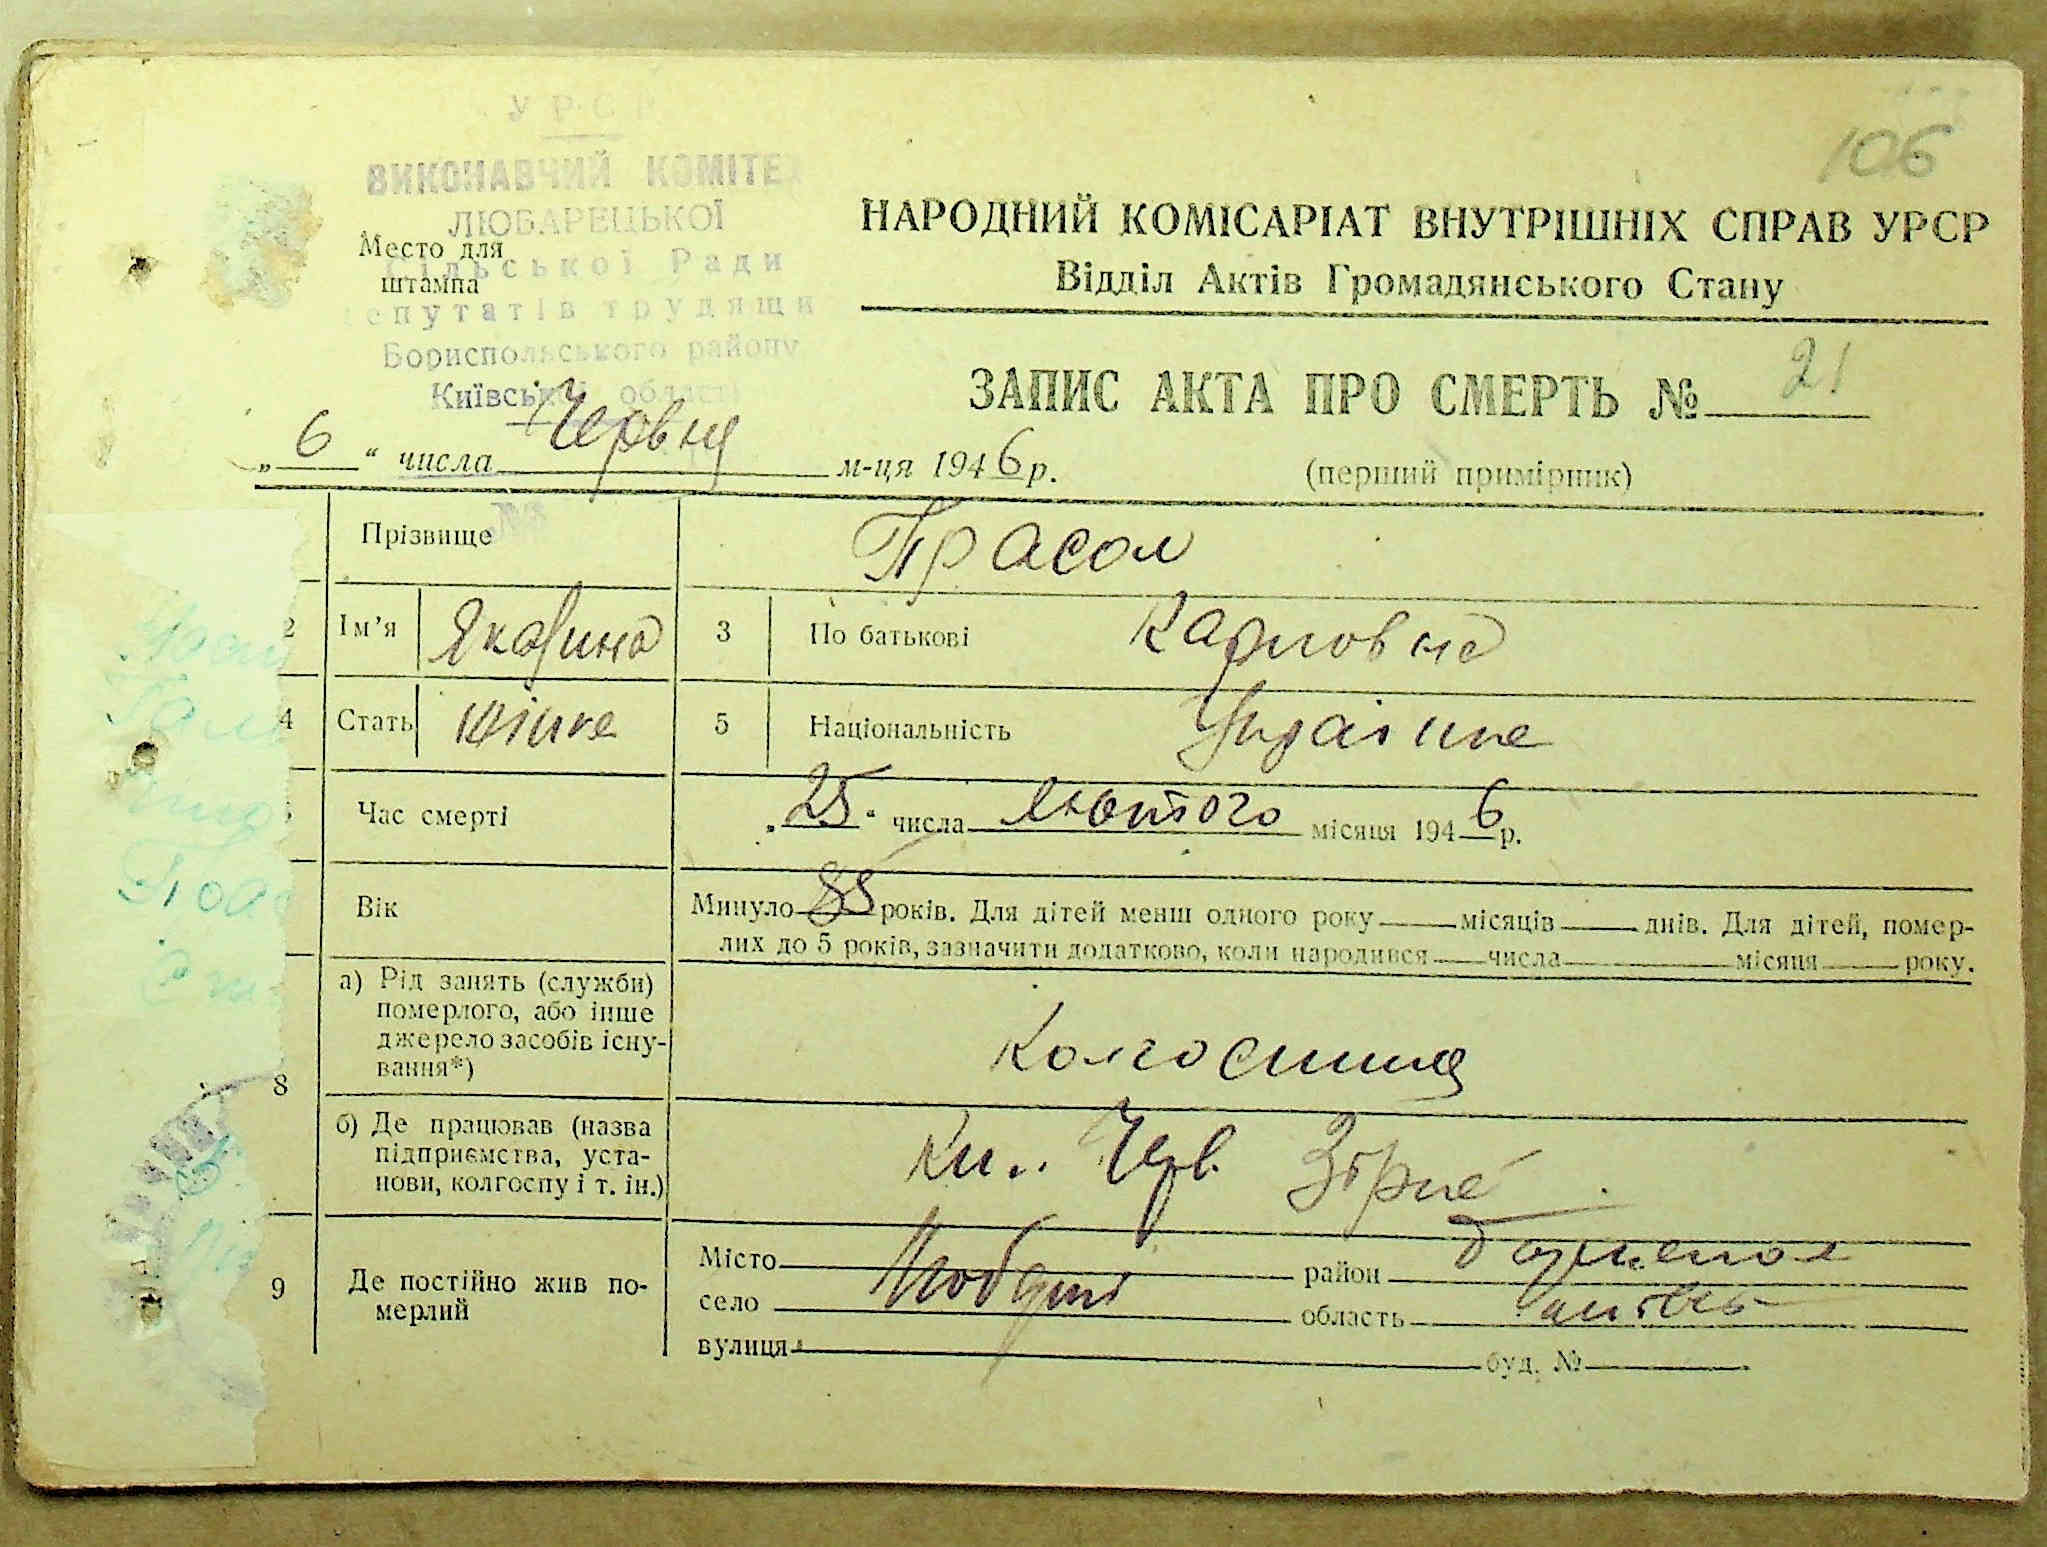 106
УРСР
ВИКОНАВЧИЙ КОМІТЕ
ЛЮБАРЕЦЬКОЇ
сільської Ради
депутатів трудящи
Бориспольського району
Київської області
Место для
штампа
НАРОДНИЙ КОМІСАРІАТ ВНУТРІШНІХ СПРАВ УРСР
Відділ Актів Громадянського Стану
ЗАПИС АКТА ПРО СМЕРТЬ № 21
„ 6 “ числа Червня м-ця 1946 р.
(перший примірник)
Прізвище Прасол
2 Ім’я 3 По батькові Карповна
4 Стать жінка 5 Національність Українка
Час смерті „25“ числа лютого місяця 1946 р.
Вік Минуло 85 років. Для дітей менш одного року місяців днів. Для дітей, помер-
лих до 5 років, зазначити додатково, коли народився числа місяця року.
8 а) Рід занять (служби)
померлого, або інше
джерело засобів існу-
вання*)
Колгоспниця
б) Де працював (назва
підприємства, уста-
нови, колгоспу і т. ін.)
Черв. Зірка
9 Де постійно жив по-
мерлий
Місто район
село область
вулиця буд. №